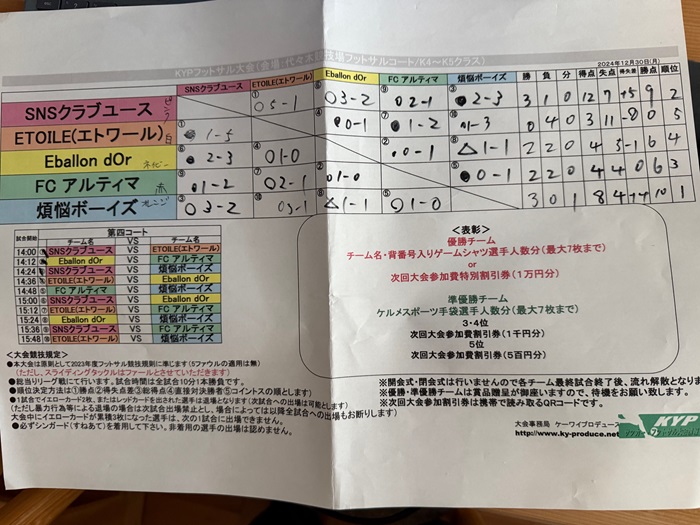 KYPフットサル大会(会場:代々木競技場フットサルコート/K4～K5クラス)
2024年12月30日(月)
SNSクラブユース ETOILE(エトワール) Eballon dOr FC アルティマ 煩悩ボーイズ 勝 負 分 得点 失点 得失差 勝点 順位
SNSクラブユース ① ○5-1 ⑥ ○3-2 ⑨ ●2-1 ③ ●2-3 3 1 0 12 7 +5 9 2
ETOILE(エトワール) 白 ① ●1-5 ④ ●0-1 ⑦ ●1-2 ⑩ ●1-3 0 4 0 3 11 -8 0 5
Eballon dOr ネイビー ⑥ ●2-3 ④ ○1-0 ② ●0-1 ⑧ △1-1
FC アルティマ 赤 ⑨ ●1-2 ⑦ ○2-1 ② ○1-0 ⑤ ●0-1 2 2 0 4 4 0 6 3
煩悩ボーイズ オレンジ ③ ○3-2 ⑩ ○3-1 ⑧ △1-1 ⑤ ○1-0 3 0 1 8 4 +4 10 1
第四コート
試合開始 チーム名 VS チーム名
14:00 ① SNSクラブユース VS ETOILE(エトワール)
14:12 ② Eballon dOr VS FC アルティマ
14:24 ③ SNSクラブユース VS 煩悩ボーイズ
14:36 ④ ETOILE(エトワール) VS Eballon dOr
14:48 ⑤ FC アルティマ VS 煩悩ボーイズ
15:00 ⑥ SNSクラブユース VS Eballon dOr
15:12 ⑦ ETOILE(エトワール) VS FC アルティマ
15:24 ⑧ Eballon dOr VS 煩悩ボーイズ
15:36 ⑨ SNSクラブユース VS FC アルティマ
15:48 ⑩ ETOILE(エトワール) VS 煩悩ボーイズ
＜表彰＞
優勝チーム
チーム名・背番号入りゲームシャツ選手人数分(最大7枚まで)
or
次回大会参加費特別割引券(1万円分)
準優勝チーム
ケルメスポーツ手袋選手人数分(最大7枚まで)
3・4位
次回大会参加費割引券(1千円分)
5位
次回大会参加費割引券(5百円分)
＜大会競技規定＞
●本大会は原則として2023年度フットサル競技規則に準じます(5ファウルの適用は無)
(ただし、スライディングタックルはファールとさせていただきます)
●総当りリーグ戦にて行います。試合時間は全試合10分1本勝負です。
●順位決定方法は①勝点②得失点差③総得点④直接対決勝者⑤コイントスの順とします)
●1試合でイエローカード2枚、またはレッドカードを出された選手は退場となります(次試合への出場は可能とします)
(ただし暴力行為等による退場の場合は次試合出場禁止とし、場合によっては以降全試合への出場もお断りします)
大会中にイエローカードが累積3枚になった選手は、次の1試合に出場できません。
●必ずシンガード(すねあて)を着用して下さい。非着用の選手の出場は認めません。
※開会式・閉会式は行いませんので各チーム最終試合終了後、流れ解散となりま
※優勝・準優勝チームは賞品贈呈が御座いますので、待機をお願い致します。
※次回大会参加費割引券は携帯で読み取るQRコードです。
大会事務局 ケーワイプロデュース
http://www.ky-produce.net
KYP